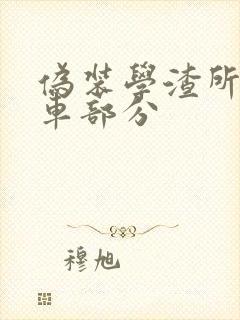 偽裝學渣所
車部分
穆旭